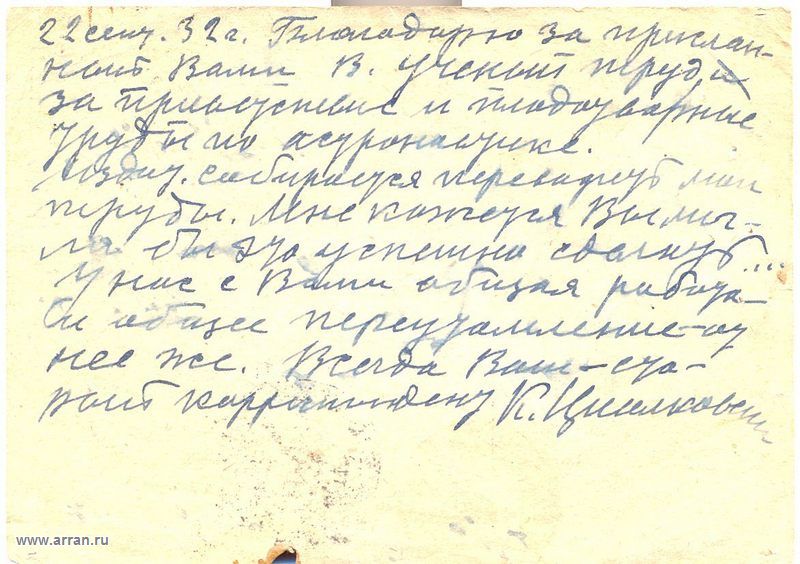 22 сент. 32 г. Благодарю за прислан-
ный Вами В. ученый труд и
за приветствие и плодотворные
труды по астронавтике.
собирается мои
труды. Мне кажется Вы мог-
ли бы это успешно сделать....
У нас с Вами общая работа
и общее переутомление - от
нее же. Всегда Ваш - ста-
рый корреспондент К. Циолковский
www.arran.ru